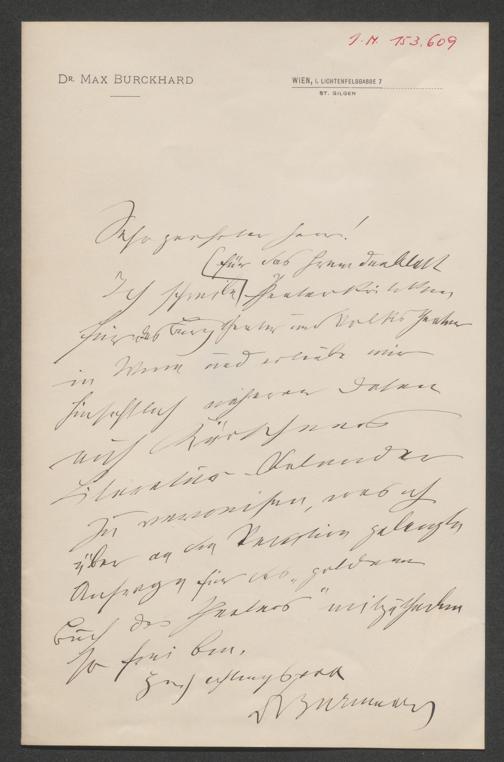 J. N. 153.609
DR. MAX BURCKHARD
WIEN, I. LICHTENFELSGASSE 7
ST. GILGEN
Sehr geehrter Herr!
(für das Fremdenblatt
Ich schreibe Theaterkritiken
für das Burgtheater und Volkstheater
in Wien und erlaube mir
hinsichtlich näherer Daten
auf Kürschners
Literatur-Kalender
zu verweisen, was ich
über an die Redaktion gelangte
Anfrage für das „goldene
Buch des Theaters" mitzutheilen
so frei bin.
Hochachtungsvoll
Dr Burckhard